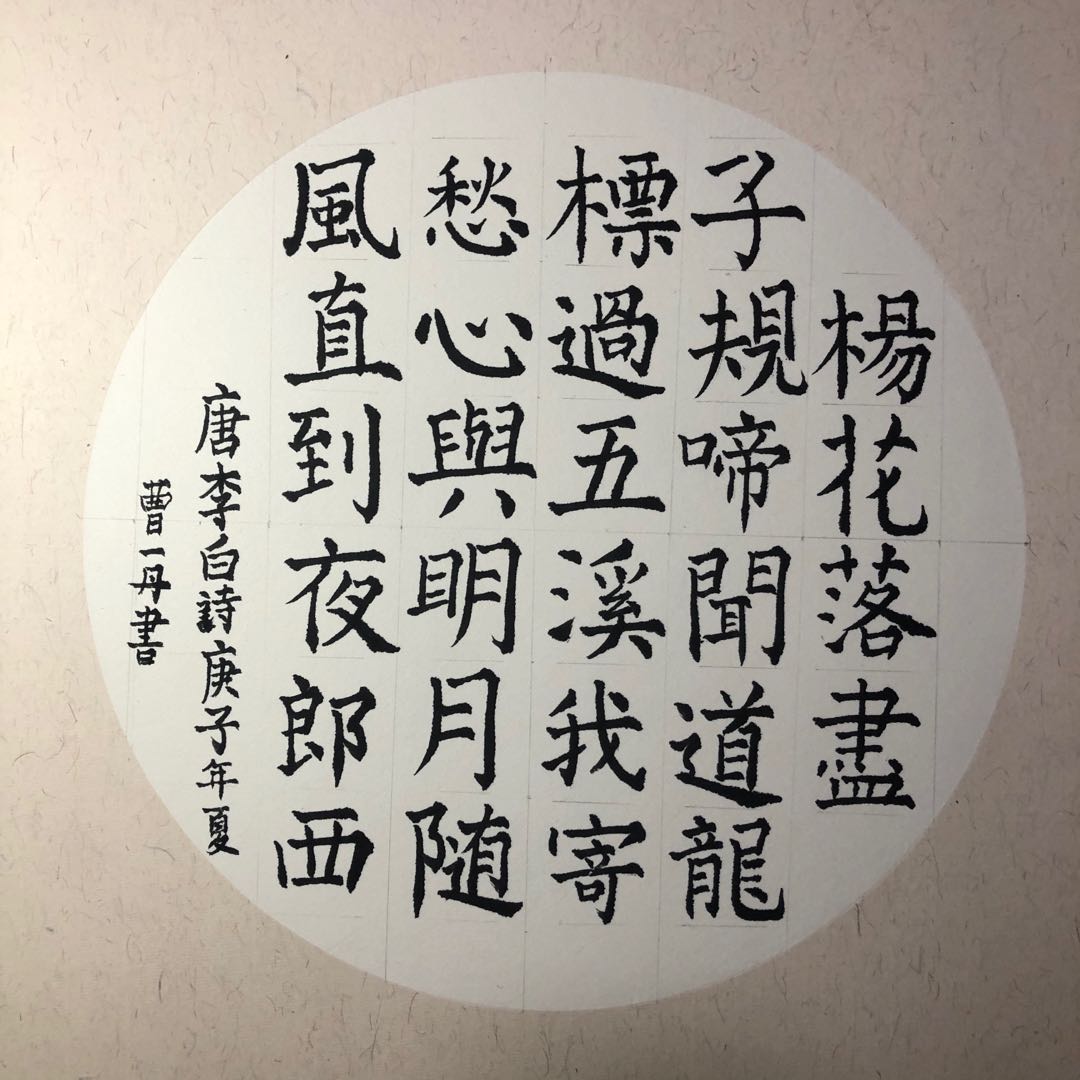 楊花落盡
子規啼聞道龍
標過五溪我寄
愁心與明月随
風直到夜郎西
唐李白詩庚子年夏
曹一丹書